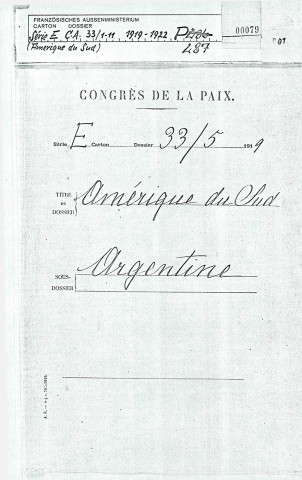 FRANZÖSISCHES AUSSENMINISTERIUM
CARTON DOSSIER
Série E C.A. 33/1-11 1919-1922
(Amérique du Sud) 287
00079
CONGRÈS DE LA PAIX.
Série E Carton Dossier 33/5 1919
TITRE DU DOSSIER Amérique du Sud
SOUS-DOSSIER Argentine